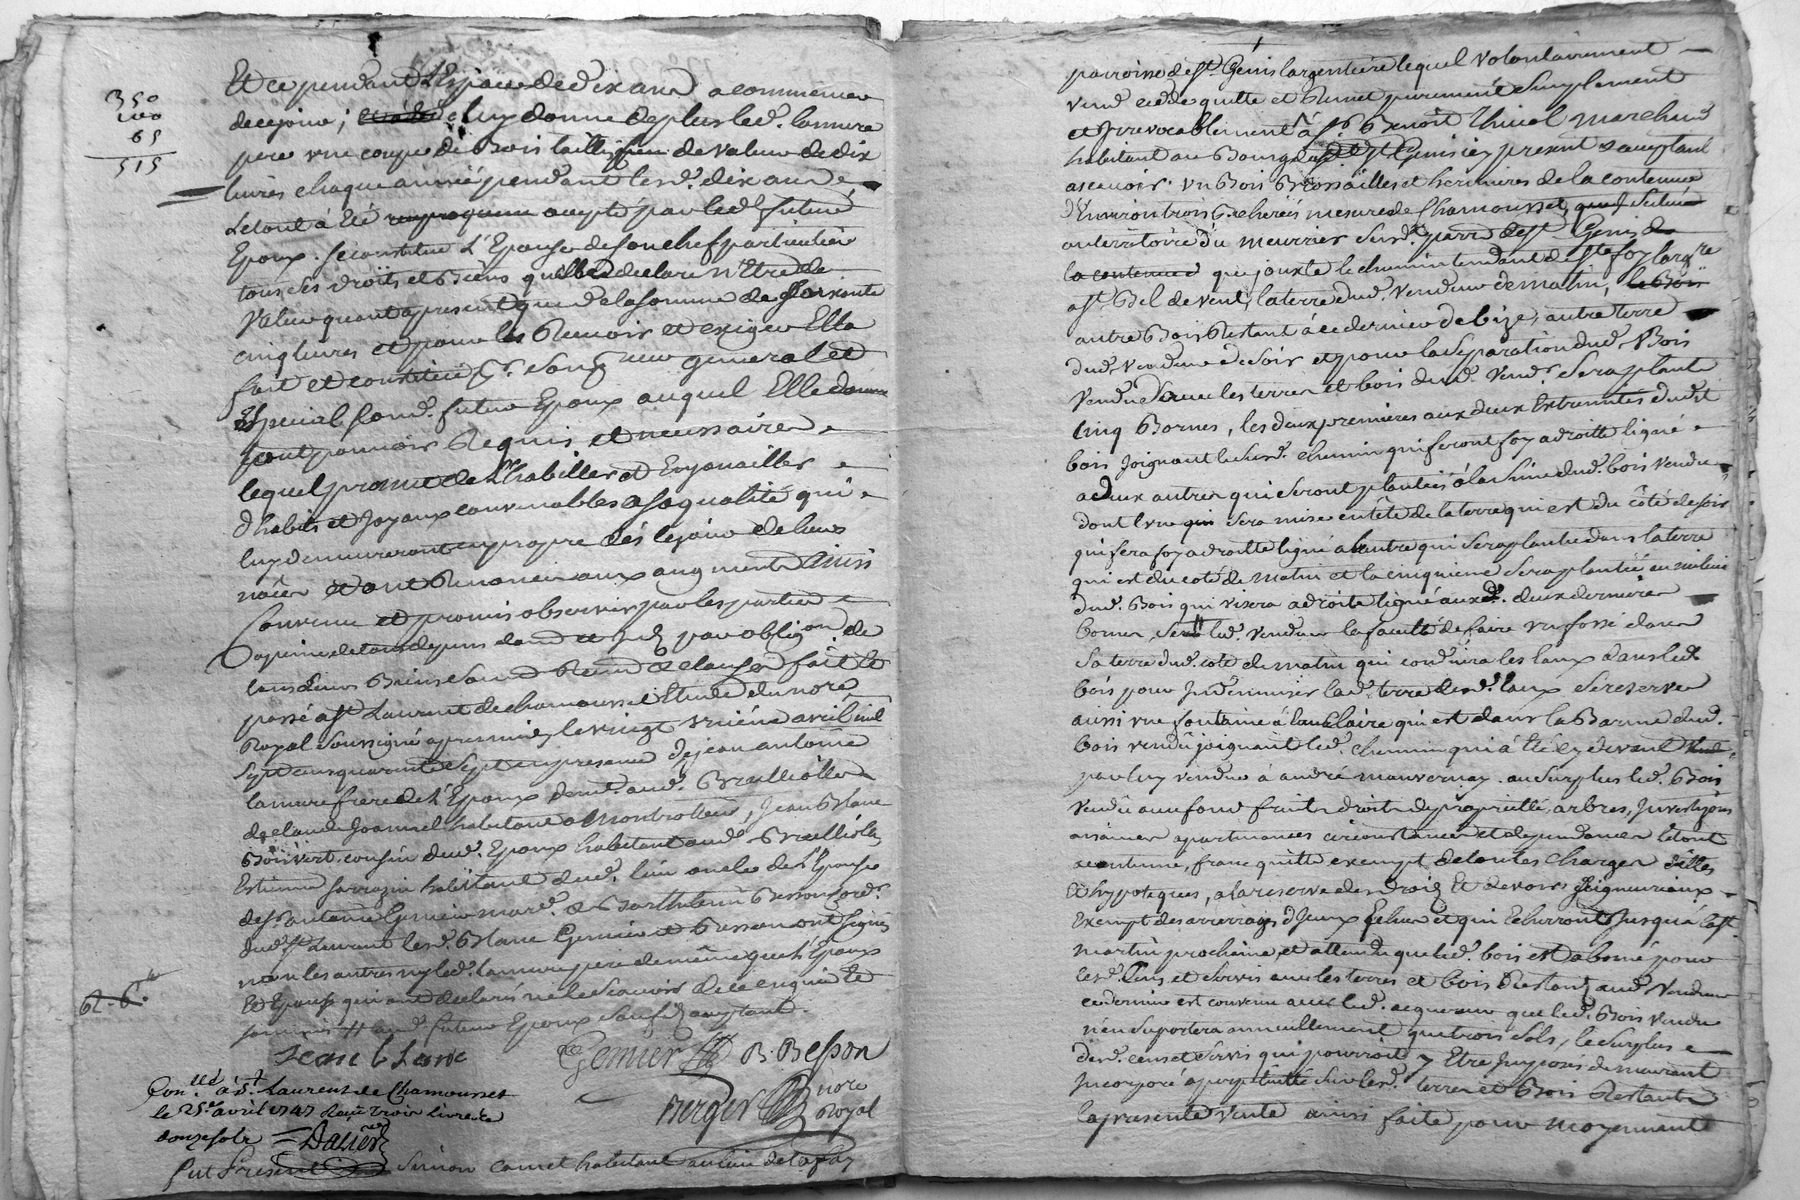 350
100
65
515
Et ce pendant L'Espace de dix ans a commencer
de ce jour; luy donne de plus led. Lamure
pere une coupe de Bois taillis de valeur de dix
livres chaque année pendant lesd. dix ans
Letout à été accepté par led. futur
Epoux. Se constitue L'Epouse de son chef particulier
tous ses droits et Biens qu'elle declare n'Etre de
Valeur quant apresent que de la somme de soixante
cinq livres et pour les Recevoir et exiger Elle
fait et constitue general et
special led. futur Epoux auquel Elle donne
tout pouvoir Requis et necessaire
lequel promet de L'habiller et Enjoyailler
d'habits et Joyaux convenables a sa qualité qui
luy demeureront en propre dés le jour de leurs
nôces et ont Renoncé aux augments Ainsi
Convenu et promis observer par les parties
a peine de tous depens dom. et par oblig.on de
tous leurs Biens Renon.
passé a St. Laurent de chamousset Etude du no.re
Royal soussigné apres midy le vingt unième avril mil
sept cens quarante sept en presence de jean antoine
Lamure frere de L'Epoux dem. aud. Brulliolle
de claude Joannel habitant a Montrottier, Jean Blanc
Boinvert cousin dud. Epoux habitant aud. Brulliolle
Estienne sarrazin habitant dud. lieu oncle de L'Epouse
de Sr antoine Genier march. & Barthelemi Besson cord.
dud. St. Laurent lesd. Blanc Genier et Besson ont signé
non les autres ny led. Lamure pere de même que L'Epoux
et Epouse qui ont declaré ne le sçavoir de ce enquis et
sommés // aud. futur Epoux acceptant.
62-6
Jean blanc Genier B. Besson
Con.llé à St. Laurent de Chamousset
le 25e. avril 1747 Reçû trois livres
douze sols Dasier
Berger no.re Royal
fut Present Simon Camet habitant au lieu de
parroisse de St. Genis largentiere lequel volontairement
vend cede quitte et Remet purement simplement
et Irrevocablement à Sr. Benoît Thivel marchand
habitant au Bourg dud. St Genis icy present & acceptant
ascavoir un Bois Brossailles et herminres de la contenue
d'Environ trois Bicherées mesure de Chamousset, situé
au territoire du meurrier susd. parr. de St Genis
la contenue que jouxte le chemin tendant de Ste foy largre.
a St. Bel de vent, la terre dud. vendeur de matin, le Bois
autre Bois Restant á ce dernier de bize, autre terre
dud. vendeur de soir et pour la separation dud. Bois
vendu d'avec les terres et bois dud. vend.r sera planté
Cinq Bornes, les deux premieres aux deux Extremités dudit
bois joignant le susd. chemin qui feront foy a droitte ligne
a deux autres qui seront plantées á la Sime dud. bois vendu
dont l'une sera mise en tête de la terre qui est du côté de soir
qui fera foy a droitte ligne a l'autre qui sera plantée dans la terre
qui est du coté de matin et la cinquieme sera plantée au milieu
dud. Bois qui visera a droite ligne aux d. deux dernieres
bornes, led. vendeur la faculté de faire un fossé dans
sa terre dud. coté de matin qui conduira les Eaux dans led.
bois pour Indemniser lad. terre desd. Eaux se reserve
aussi une fontaine á Eau claire qui est dans la Barme dud.
bois vendu joignant led. chemin qui á été cy devant
par luy vendue à andré mauvernay. au surplus led. Bois
vendu avec fond fruits droits de proprieté, arbres,
aisances apartenances circonstances et dependances Letout
a contenue, franc quitte exempt de toutes charges dettes
et hypoteques, a la reserve des droits Et devoirs seigneuriaux
Exempt des arrerages d'Iceux Echus et qui Echerront Jusqu'á la St.
martin prochaine et attendu que led. bois est abonné pour
lesd. Cens et servis avec les terres et bois Restant aud. vendeur
ce dernier est convenu avec led. acquereur que led. Bois vendu
n'en suportera annuellement que trois sols, le surplus
desd. cens et servis qui pourroit y Etre Imposés demeurant
Incorporé a perpetuité sur lesd. terres et Bois Restants
la presente vente ainsi faite pour moyennant